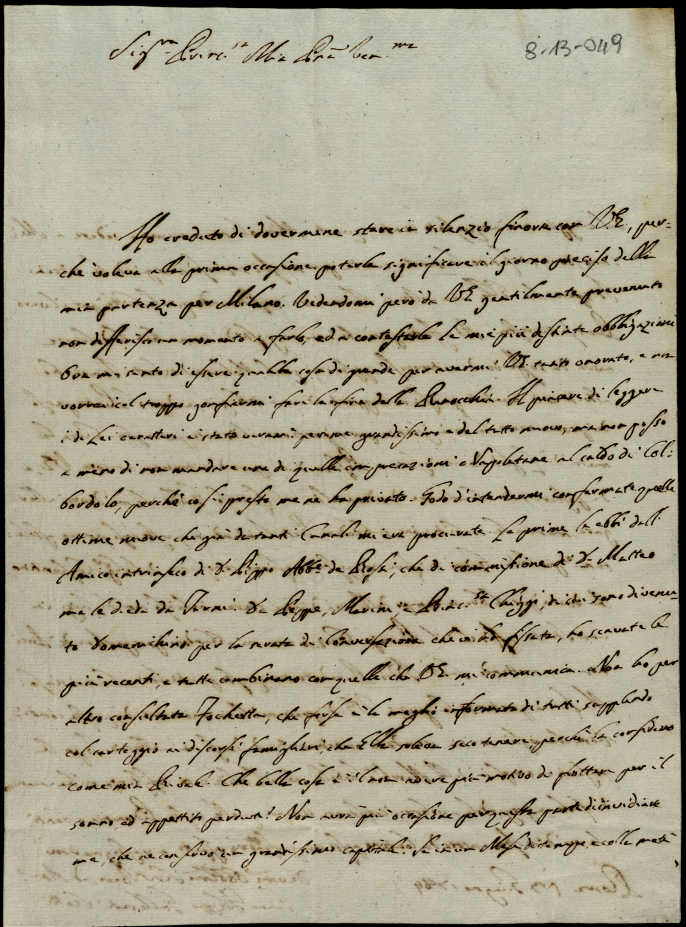 8-13-049
Sig.ra Princ.sa Mia Pne Ven.ma
Ho creduto di dovermene stare in silenzio finora con VE, per=
chè voleva alla prima occasione poterle significare il giorno preciso della
mia partenza per Milano. Vedendomi però da VE gentilmente prevenuto
non differisco un momento a farlo, ed a contestarle le mie più distinte obbligazioni
Ora mi sento di essere qualche cosa di grande per avermi VE tanto onorato, e non
vorrei col troppo gonfiarmi fare la fine della Ranocchia. Il piacere di leggere
i di Lei caratteri è stato per me grandissimo e del tutto nuovo, ma non posso
a meno di non mandare una di quelle imprecazioni Napoletane al caldo di Col:
bordolo, perchè così presto me ne ha privato. Godo d'intendermi confermate quelle
ottime nuove che già da tanti Canali mi era procurate. La prima la ebbi dall'
Amico intrinseco di D. Pippo Abbe de Rossi, che di commissione di D. Matteo
me le diede da Terni. Da Peppe, Marini e Princ.sa Chiggi, di cui sono divenu=
to Domenichino per la serata di Conversazione che vi ho fissata, ho scavate le
più recenti, e tutte combinano con quelle che VE mi communica. Non ho per
altro consultata Fochetta, che forse è la meglio informata di tutti supplendo
col carteggio ai discorsi famigliari che Ella soleva seco tenere, perchè la considero
come mia Rivale. Che bella cosa è il non avere più motivo di fiottare per il
sonno ed appettito perduti! Non avrà più occasione per questa parte d'invidiare
me, che ne conservo un grandissimo capitale. Se in un Mese di tempo, e colla metà